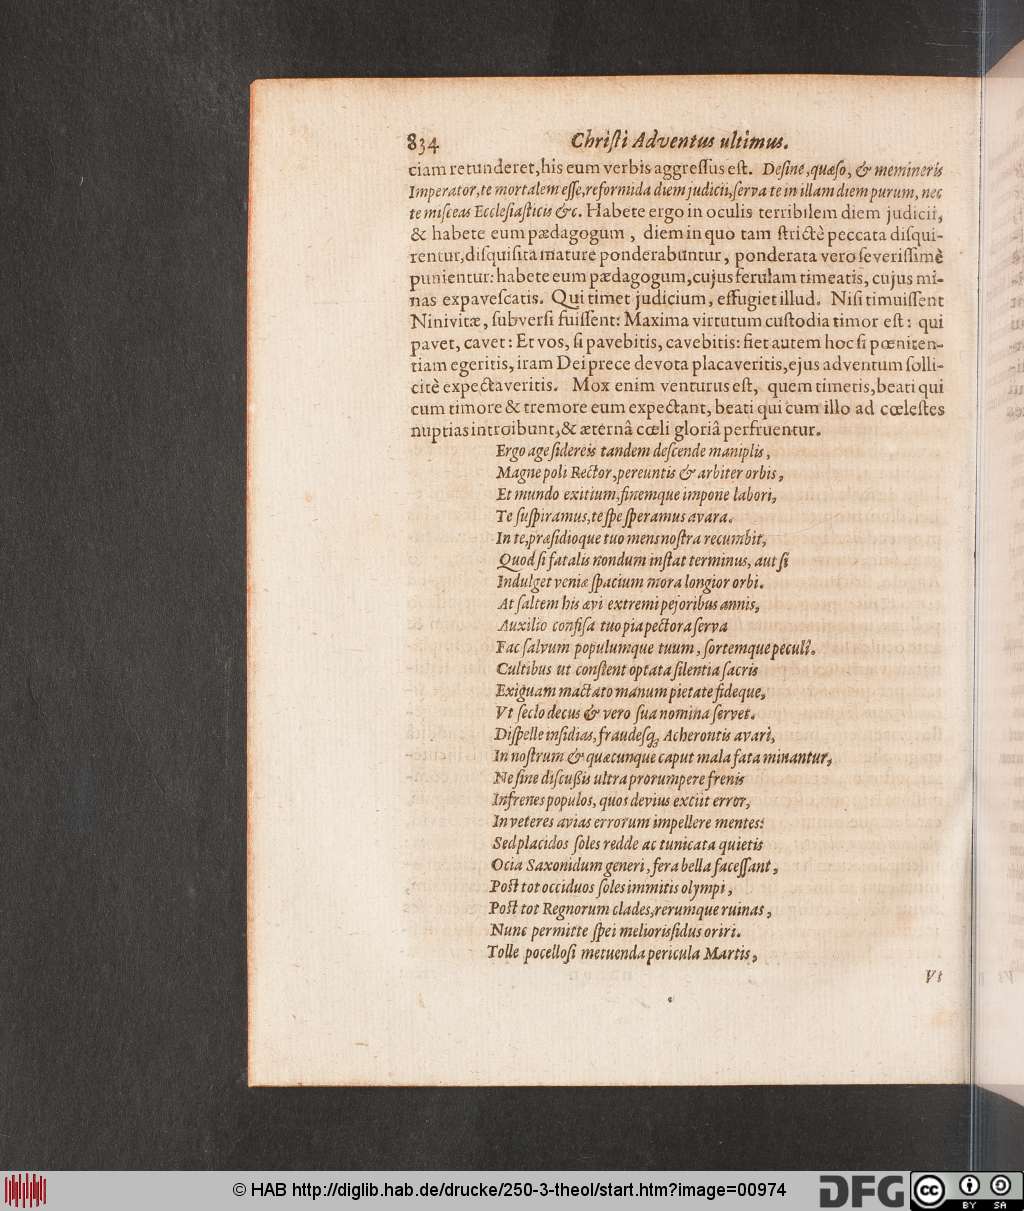 834 Christi Adventus ultimus.
ciam retunderet, his eum verbis aggressus est. Desine, quæso, & memineris
Imperator, te mortalem esse, reformida diem judicii, serva te in illam diem purum, nec
te misceas Ecclesiasticis &c. Habete ergo in oculis terribilem diem judicii,
& habete eum pædagogum, diem in quo tam strictè peccata disqui-
rentur, disquisita mature ponderabuntur, ponderata vero severissimè
punientur: habete eum pædagogum, cujus ferulam timeatis, cujus mi-
nas expavescatis. Qui timet judicium, effugiet illud. Nisi timuissent
Ninivitæ, subversi fuissent: Maxima virtutum custodia timor est: qui
pavet, cavet: Et vos, si pavebitis, cavebitis: fiet autem hoc si pœniten-
tiam egeritis, iram Dei prece devota placaveritis, ejus adventum solli-
citè expectaveritis. Mox enim venturus est, quem timetis, beati qui
cum timore & tremore eum expectant, beati qui cum illo ad cœlestes
nuptias introibunt, & æternâ cœli gloriâ perfruentur.
Ergo age sidereis tandem descende maniplis,
Magne poli Rector, pereuntis & arbiter orbis,
Et mundo exitium, finemque impone labori,
Te suspiramus, te spe speramus avara.
In te, præsidioque tuo mens nostra recumbit,
Quod si fatalis nondum instat terminus, aut si
Indulget veniæ spacium mora longior orbi.
At saltem his ævi extremi pejoribus annis,
Auxilio confisa tuo pia pectora serva
Fac salvum populumque tuum, sortemque peculî.
Cultibus ut constent optata silentia sacris
Exiguam mactato manum pietate fideque,
Vt seclo decus & vero sua nomina servet.
Dispelle insidias, fraudesq; Acherontis avari,
In nostrum & quæcunque caput mala fata minantur,
Ne sine discussis ultra prorumpere frenis
Infrenes populos, quos devius exciit error,
In veteres avias errorum impellere mentes:
Sed placidos soles redde ac tunicata quietis
Ocia Saxonidum generi, fera bella facessant,
Post tot occiduos soles immitis olympi,
Post tot Regnorum clades, rerumque ruinas,
Nunc permitte spei melioris sidus oriri.
Tolle pocellosi metuenda pericula Martis,
Vt
© HAB http://diglib.hab.de/drucke/250-3-theol/start.htm?image=00974
DFG
cc BY SA